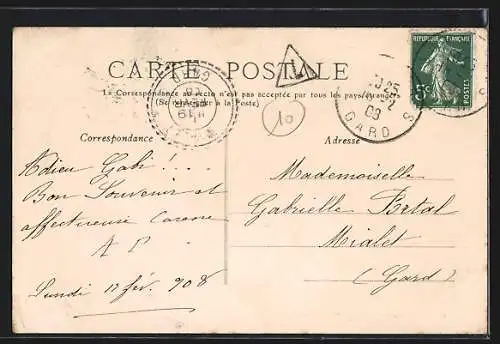 CARTE POSTALE
La Correspondance au recto n'est pas acceptée par tous les pays étrangers
(Se renseigner à la Poste)
REPUBLIQUE FRANÇAISE
5c
POSTES
GARD
10
Correspondance
Adresse
Adieu Gabi!...
Bon Souvenir et
affectueuse Caresse
A P
Lundi 17 fév. 908
Mademoiselle
Gabrielle
Mialet
(Gard)